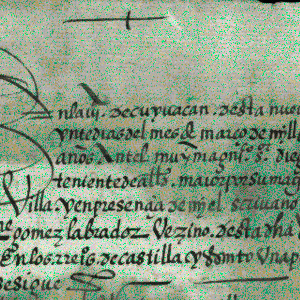 En la vi^a. de cuyuacan. desta nue
veynte dias del mes de março de myll
años. Antel muy magnj^co. s^or. die
teniente de allde. maior por su mag
villa y en presençia de mj el scrivano
gomez labrador vezino desta dha
En los rreys. de castilla y
desigue